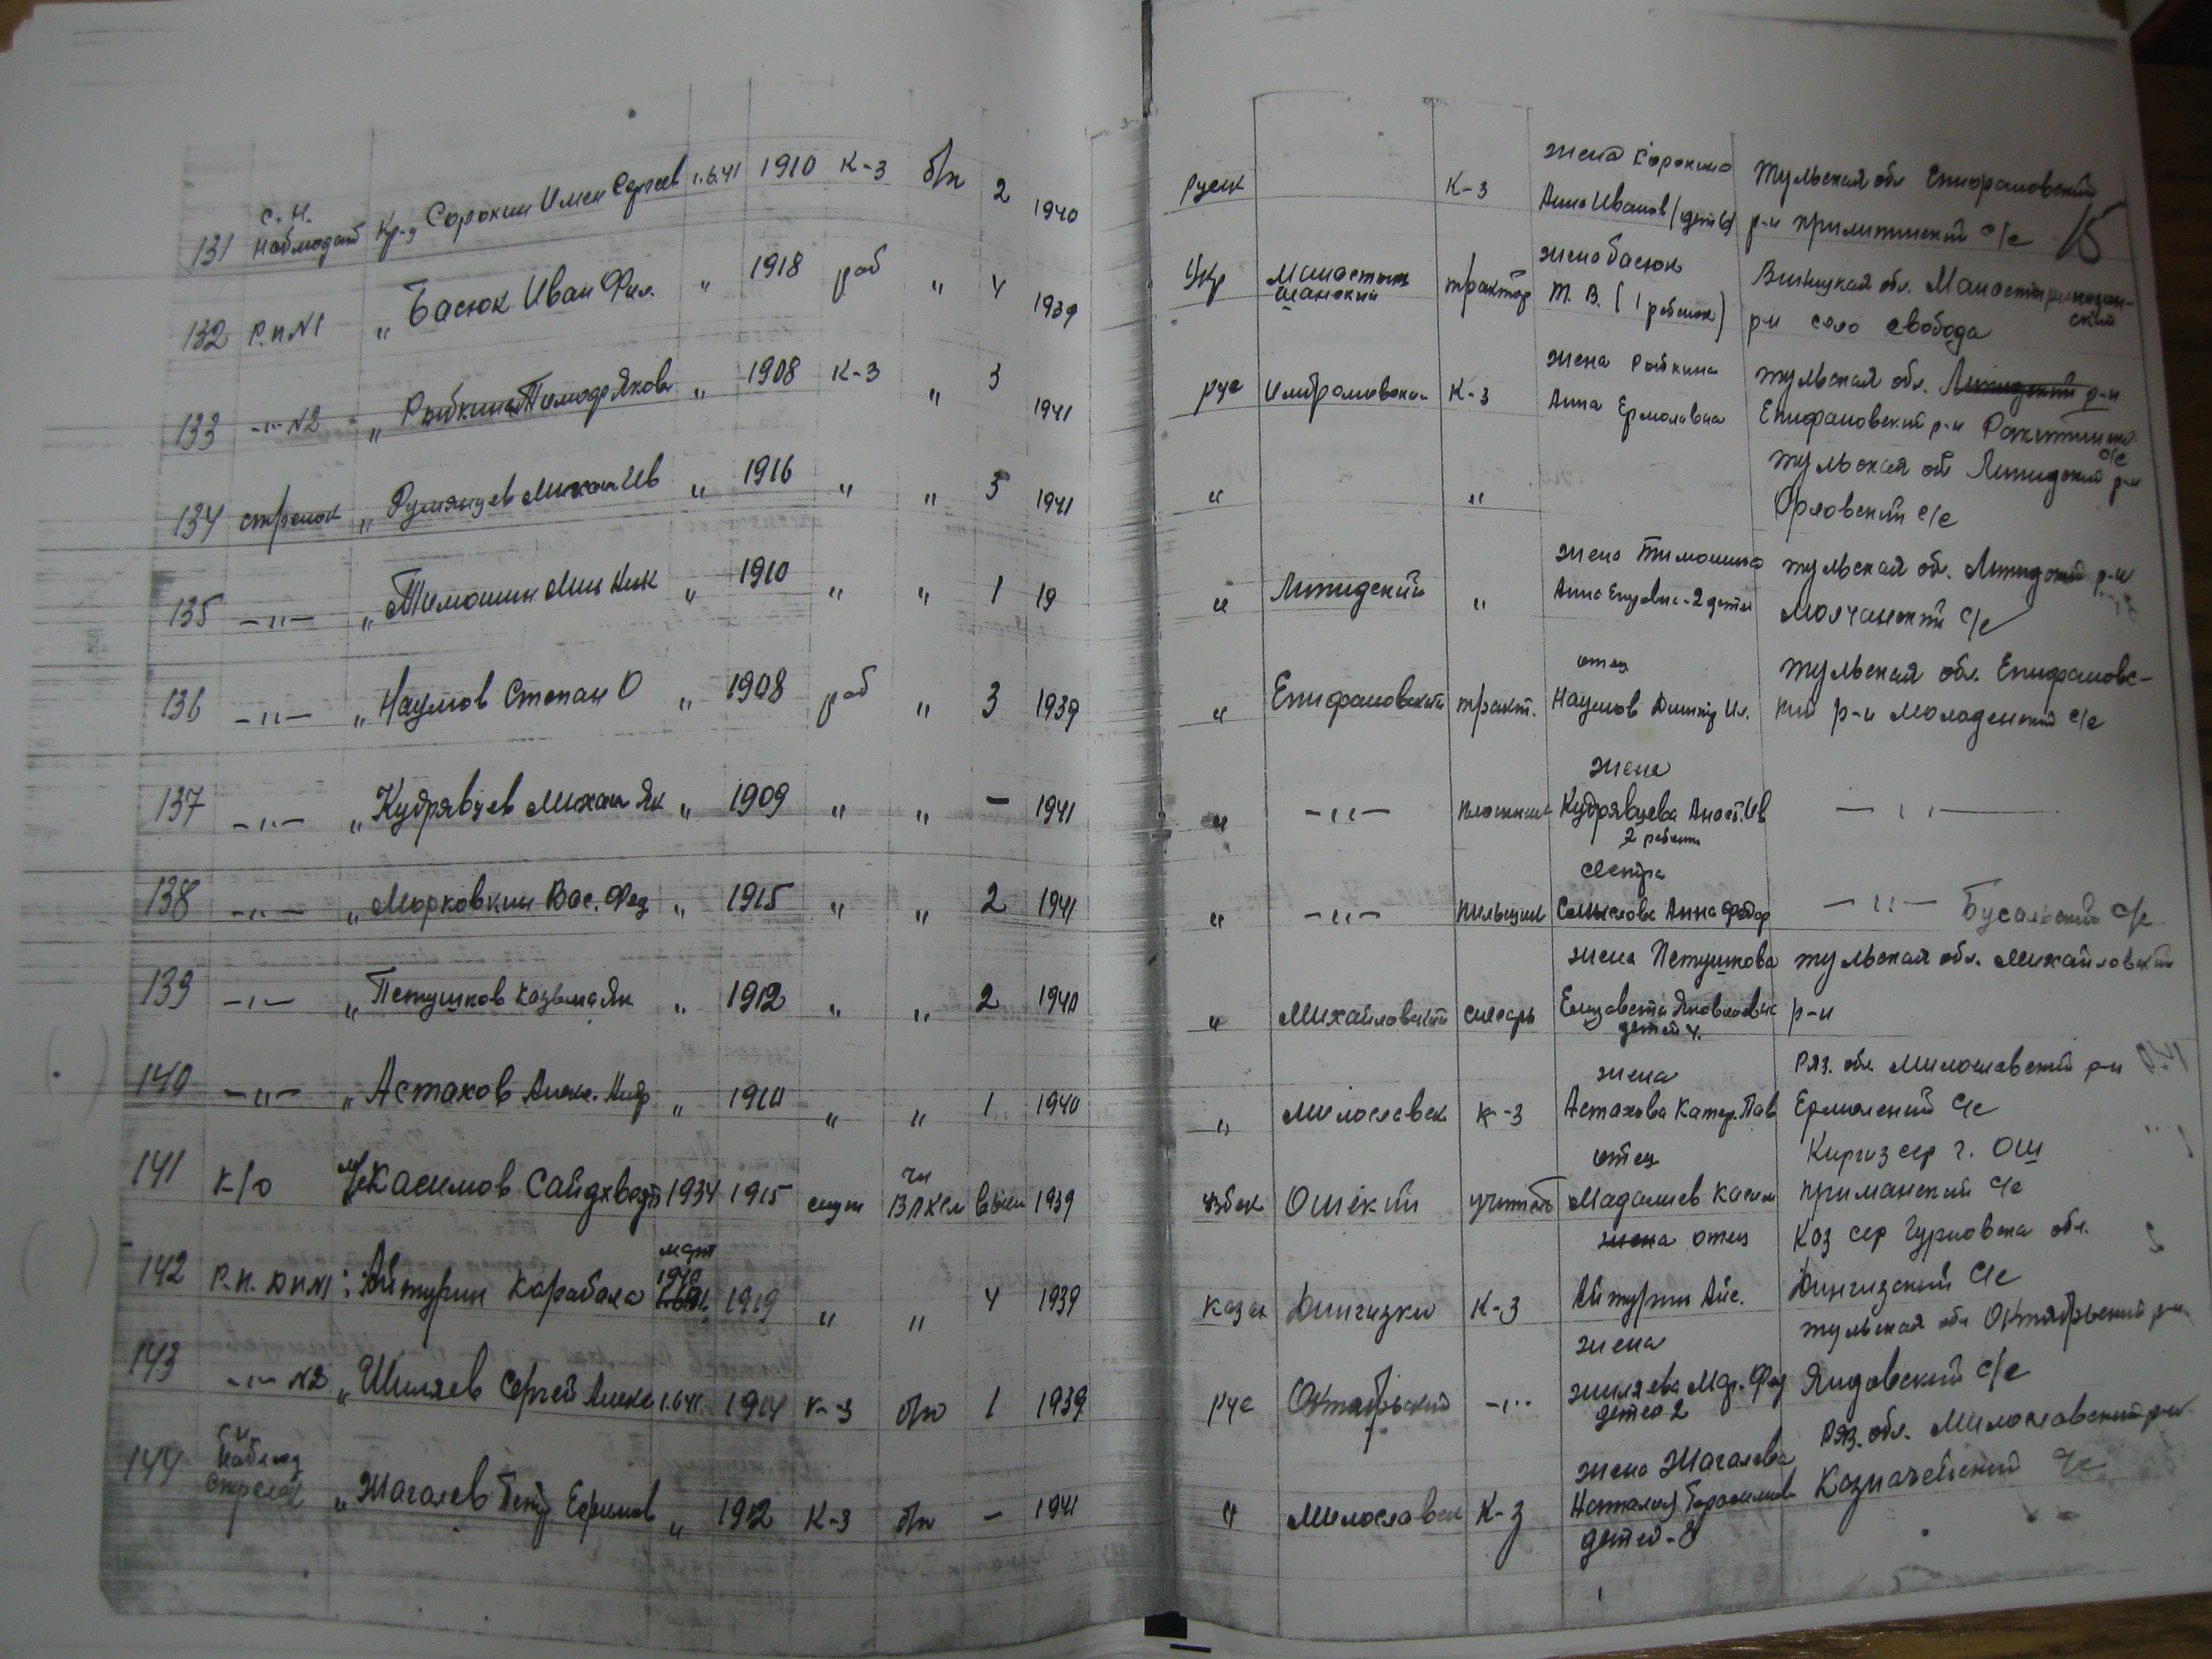 131 с.н. наблюдат Кр-ц Сорокин Имен Сергеев 1.6.41 1910 К-з б/п 2 1940 русск К-з жена Сорокина Анна Иванов (детей) Тульская обл Епифановский р-н с/с 15
132 Р.п N1 " Басюк Иван Фил. " 1918 раб " 4 1939 Укр тракторист жена Басюк Т. В. (1 ребенок) Виницкая обл. р-н село свобода
133 -"- N2 " Рыбкин Тимоф Яков " 1908 К-з " 3 1941 рус К-з жена Рыбкина Анна Ермолавна Тульская обл. Лепидский р-н Епифановский р-н Ракитинско с/с
134 стрелок " Румянцев Михаил Ив " 1916 " " 5 1941 " " Тульская об Лепидский р-н Орловский с/с
135 -"- " Тимошин Мих Ник " 1910 " " 1 19 " Лепидский " жена Тимошина Анна - 2 детей Тульская обл. Лепидский р-н Молчанский с/с
136 -"- " Наумов Степан О " 1908 раб " 3 1939 " Епифановский тракт. отец Наумов Дмитр Ил. Тульская обл. Епифановс-кий р-н Молоденский с/с
137 -"- " Кудрявцев Михаил Як " 1909 " " - 1941 " -"- плотник жена Кудрявцева Анаст. Ив 2 ребенк -"-
138 -"- " Морковкин Вас. Фед " 1915 " " 2 1941 " -"- пильщик сестра Смыслова Анна Федор -"- Бусальский с/с
139 -"- " Петушков Козьма Як " 1912 " " 2 1940 " Михайловский слесарь жена Петушкова Елизавета Яковлевна детей 4. Тульская обл. Михайловский р-н
140 -"- " Астахов Алекс. Анд " 1910 " " 1 1940 " Милославск К-з жена Астахова Катер. Пав Ряз. обл. Милославский р-н с/с
141 К/о Касимов Сайд 1934 1915 служ чл ВЛКСМ высш 1939 Узбек Ошский учитель отец Мадалиев Касим Киргиз сср г. Ош с/с
142 Р.п. ДП N1 Айтурин Карабала март 1940 1919 " " 4 1939 казах Дингизки К-з жена отец Айтурин Айс. Каз сср Гурьевска обл. Дингизский с/с
143 -"- N2 " Шиляев Сергей Алекс 1.6.41 1914 К-з б/п 1 1939 рус Октябрьский -"- жена Шиляева Мар. Фед детей 2 Тульская обл Октябрьский р-н с/с
144 с.н. наблюд стрелок " Жагалев Петр Ефимов " 1912 К-з б/п - 1941 " Милославск К-з жена Жагалева Наталия Герасимов детей-3 Ряз. обл. Милославский р-н Казначеевский с/с